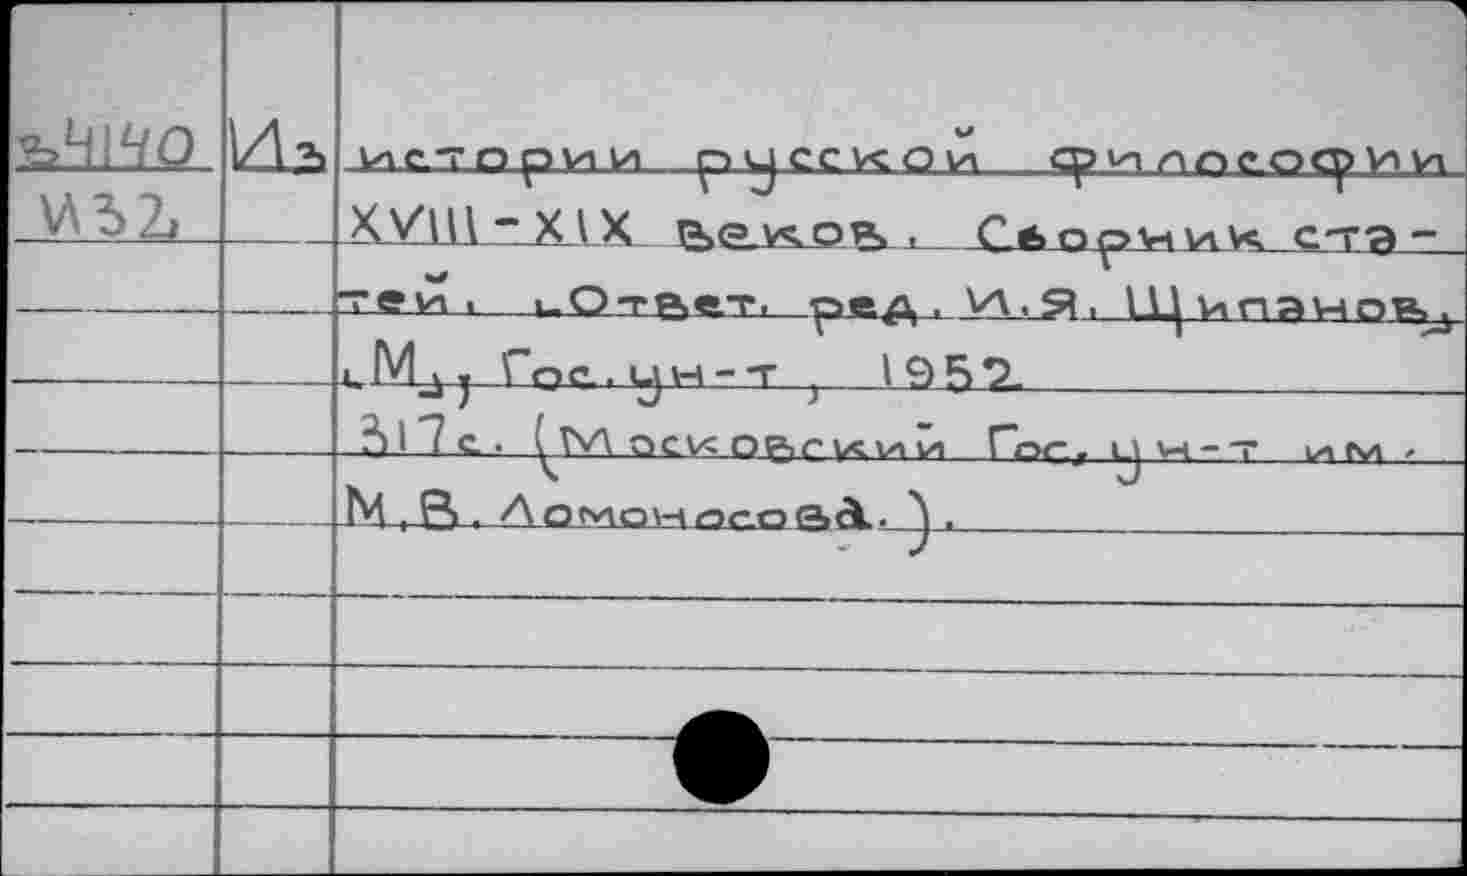 В4140 Из истории русской философии
И32 XVIII-XIX веков. Сборник ста-
тей. [Ответ. ред. И.Я. Щипанов]
[М.], Гос. ун-т, 1952
317с. (Московский Гос. ун-т им.
М.В. Ломоносова.).